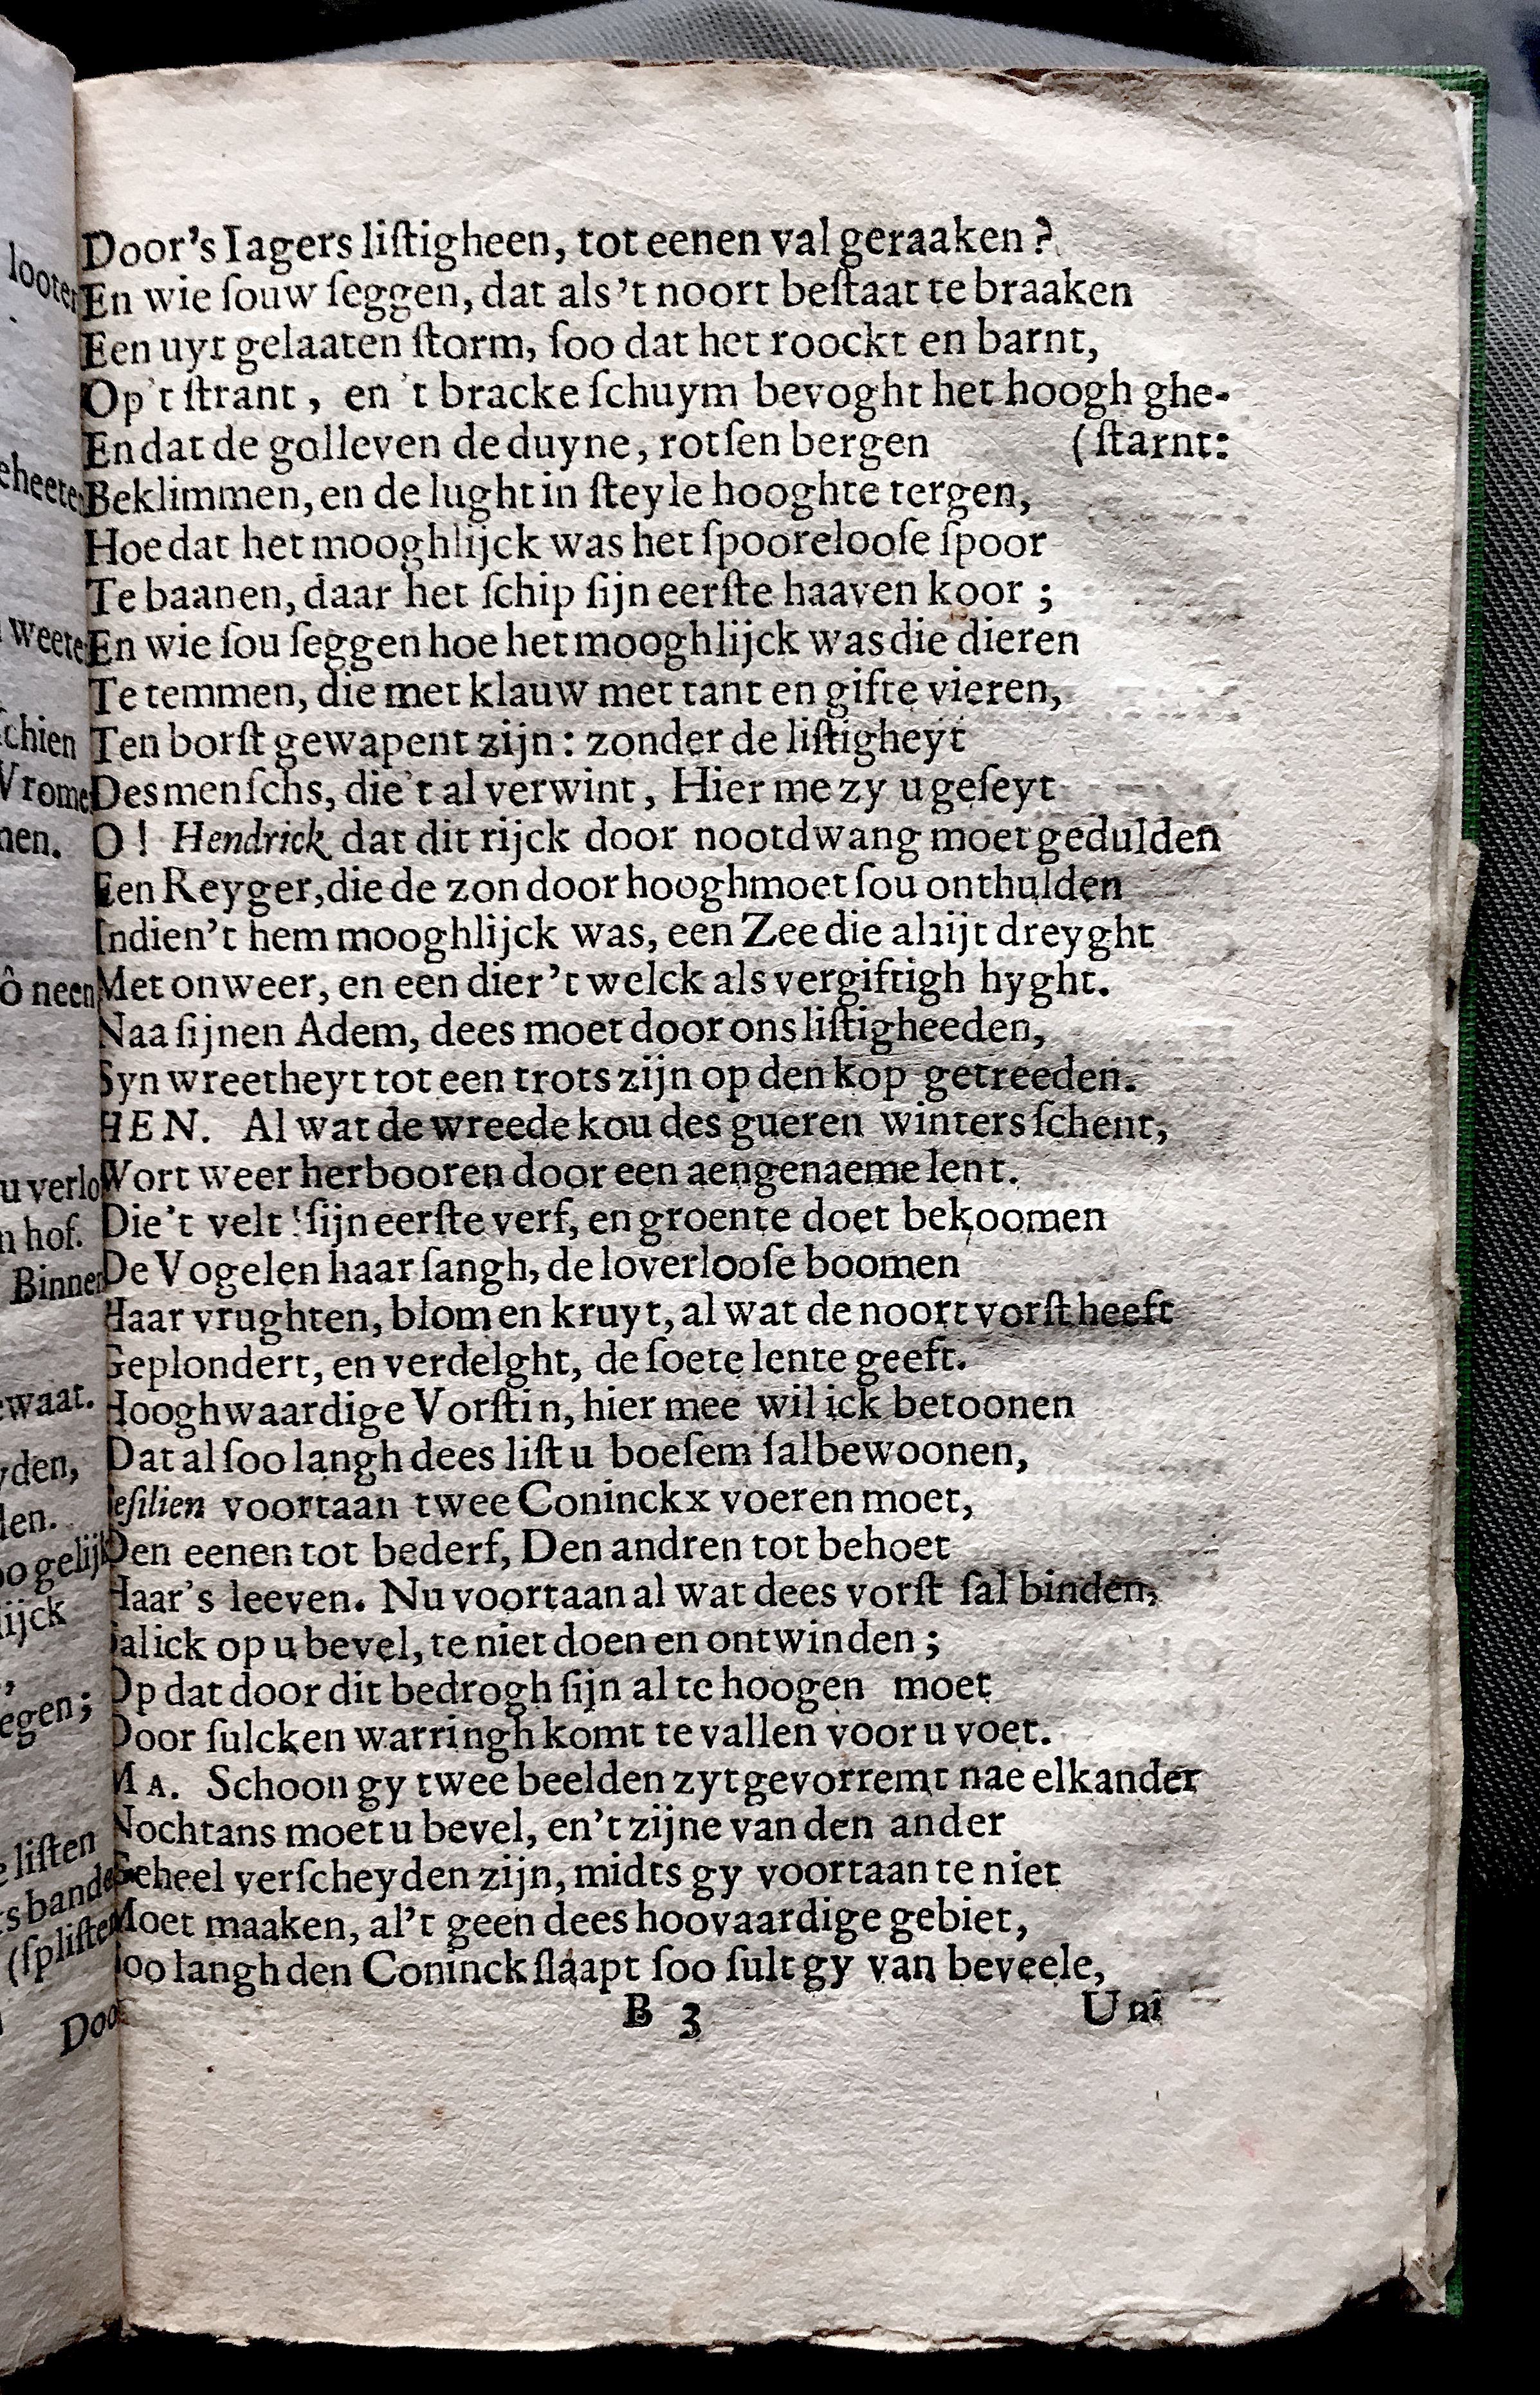 Door's Iagers liſtigheen, tot eenen val geraaken?
En wie ſouw ſeggen, dat als 't noort beſtaat te braaken
Een uyt gelaaten ſtorm, ſoo dat het roockt en barnt,
Op 't ſtrant, en 't bracke ſchuym bevoght het hoogh ghe-
En dat de golleven de duyne, rotſen bergen (ſtarnt:
Beklimmen, en de lught in ſteyle hooghte tergen,
Hoe dat het mooghlijck was het ſpooreloose ſpoor
Te baanen, daar het ſchip ſijn eerſte haaven koor;
En wie ſou ſeggen hoe het mooghlijck was die dieren
Te temmen, die met klauw met tant en gifte vieren,
Ten borſt gewapent zijn: zonder de liſtigheyt
Des menſchs, die 't al verwint, Hier me zy u geſeyt
O! Hendrick dat dit rijck door nootdwang moet gedulden
Een Reyger, die de zon door hooghmoet ſou onthulden
Indien't hem mooghlijck was, een Zee die altijt dreyght
Met onweer, en een dier 't welck als vergiftigh hyght.
Naa ſijnen Adem, dees moet door ons liſtigheeden,
Syn wreetheyt tot een trots zijn op den kop getreeden.
HEN. Al wat de wreede kou des gueren winters ſchent,
Wort weer herbooren door een aengenaeme lent.
Die't velt ſijn eerſte verf, en groente doet bekoomen
De Vogelen haar ſangh, de loverlooſe boomen
Haar vrughten, blom en kruyt, al wat de noort vorſt heeft
Geplondert, en verdelght, de ſoete lente geeft.
Hooghwaardige Vorſtin, hier mee wil ick betoonen
Dat al ſoo langh dees liſt u boeſem ſal bewoonen,
Seſilien voortaan twee Coninckx voeren moet,
Den eenen tot bederf, Den andren tot behoet
Haar's leeven. Nu voortaan al wat dees vorſt ſal binden,
Sal ick op u bevel, te niet doen en ontwinden;
Op dat door dit bedrogh ſijn al te hoogen moet
Door ſulcken warringh komt te vallen voor u voet.
MA. Schoon gy twee beelden zyt gevorremt nae elkander
Nochtans moet u bevel, en't zijne van den ander
Geheel verſcheyden zijn, midts gy voortaan te niet
Moet maaken, al't geen dees hoovaardige gebiet,
Soo langh den Coninck ſlaapt ſoo ſult gy van beveele,
B 3 Uni
looten
eheeten
weete
ſchien
Vrome
nen.
ô neen
u verlo
n hof.
Binnen
waat.
yden,
len.
oo gelijk
lijck
egen;
liſten
s bande
(ſpliſten
Door